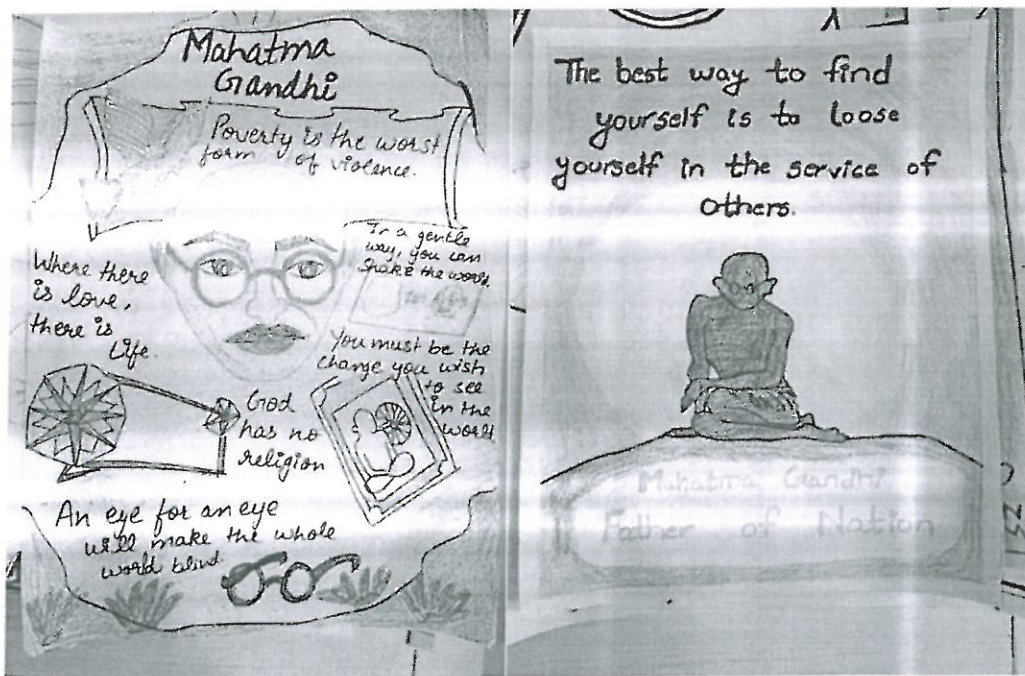 Mahatma
Gandhi
Poverty is the worst
form of violence.
In a gentle
way, you can
shake the world.
Where there
is love,
there is
Life.
You must be the
change you wish
to see
in the
world
God
has no
religion
An eye for an eye
will make the whole
world blind
The best way to find
yourself is to loose
yourself in the service of
others.
Mahatma Gandhi
Father of Nation